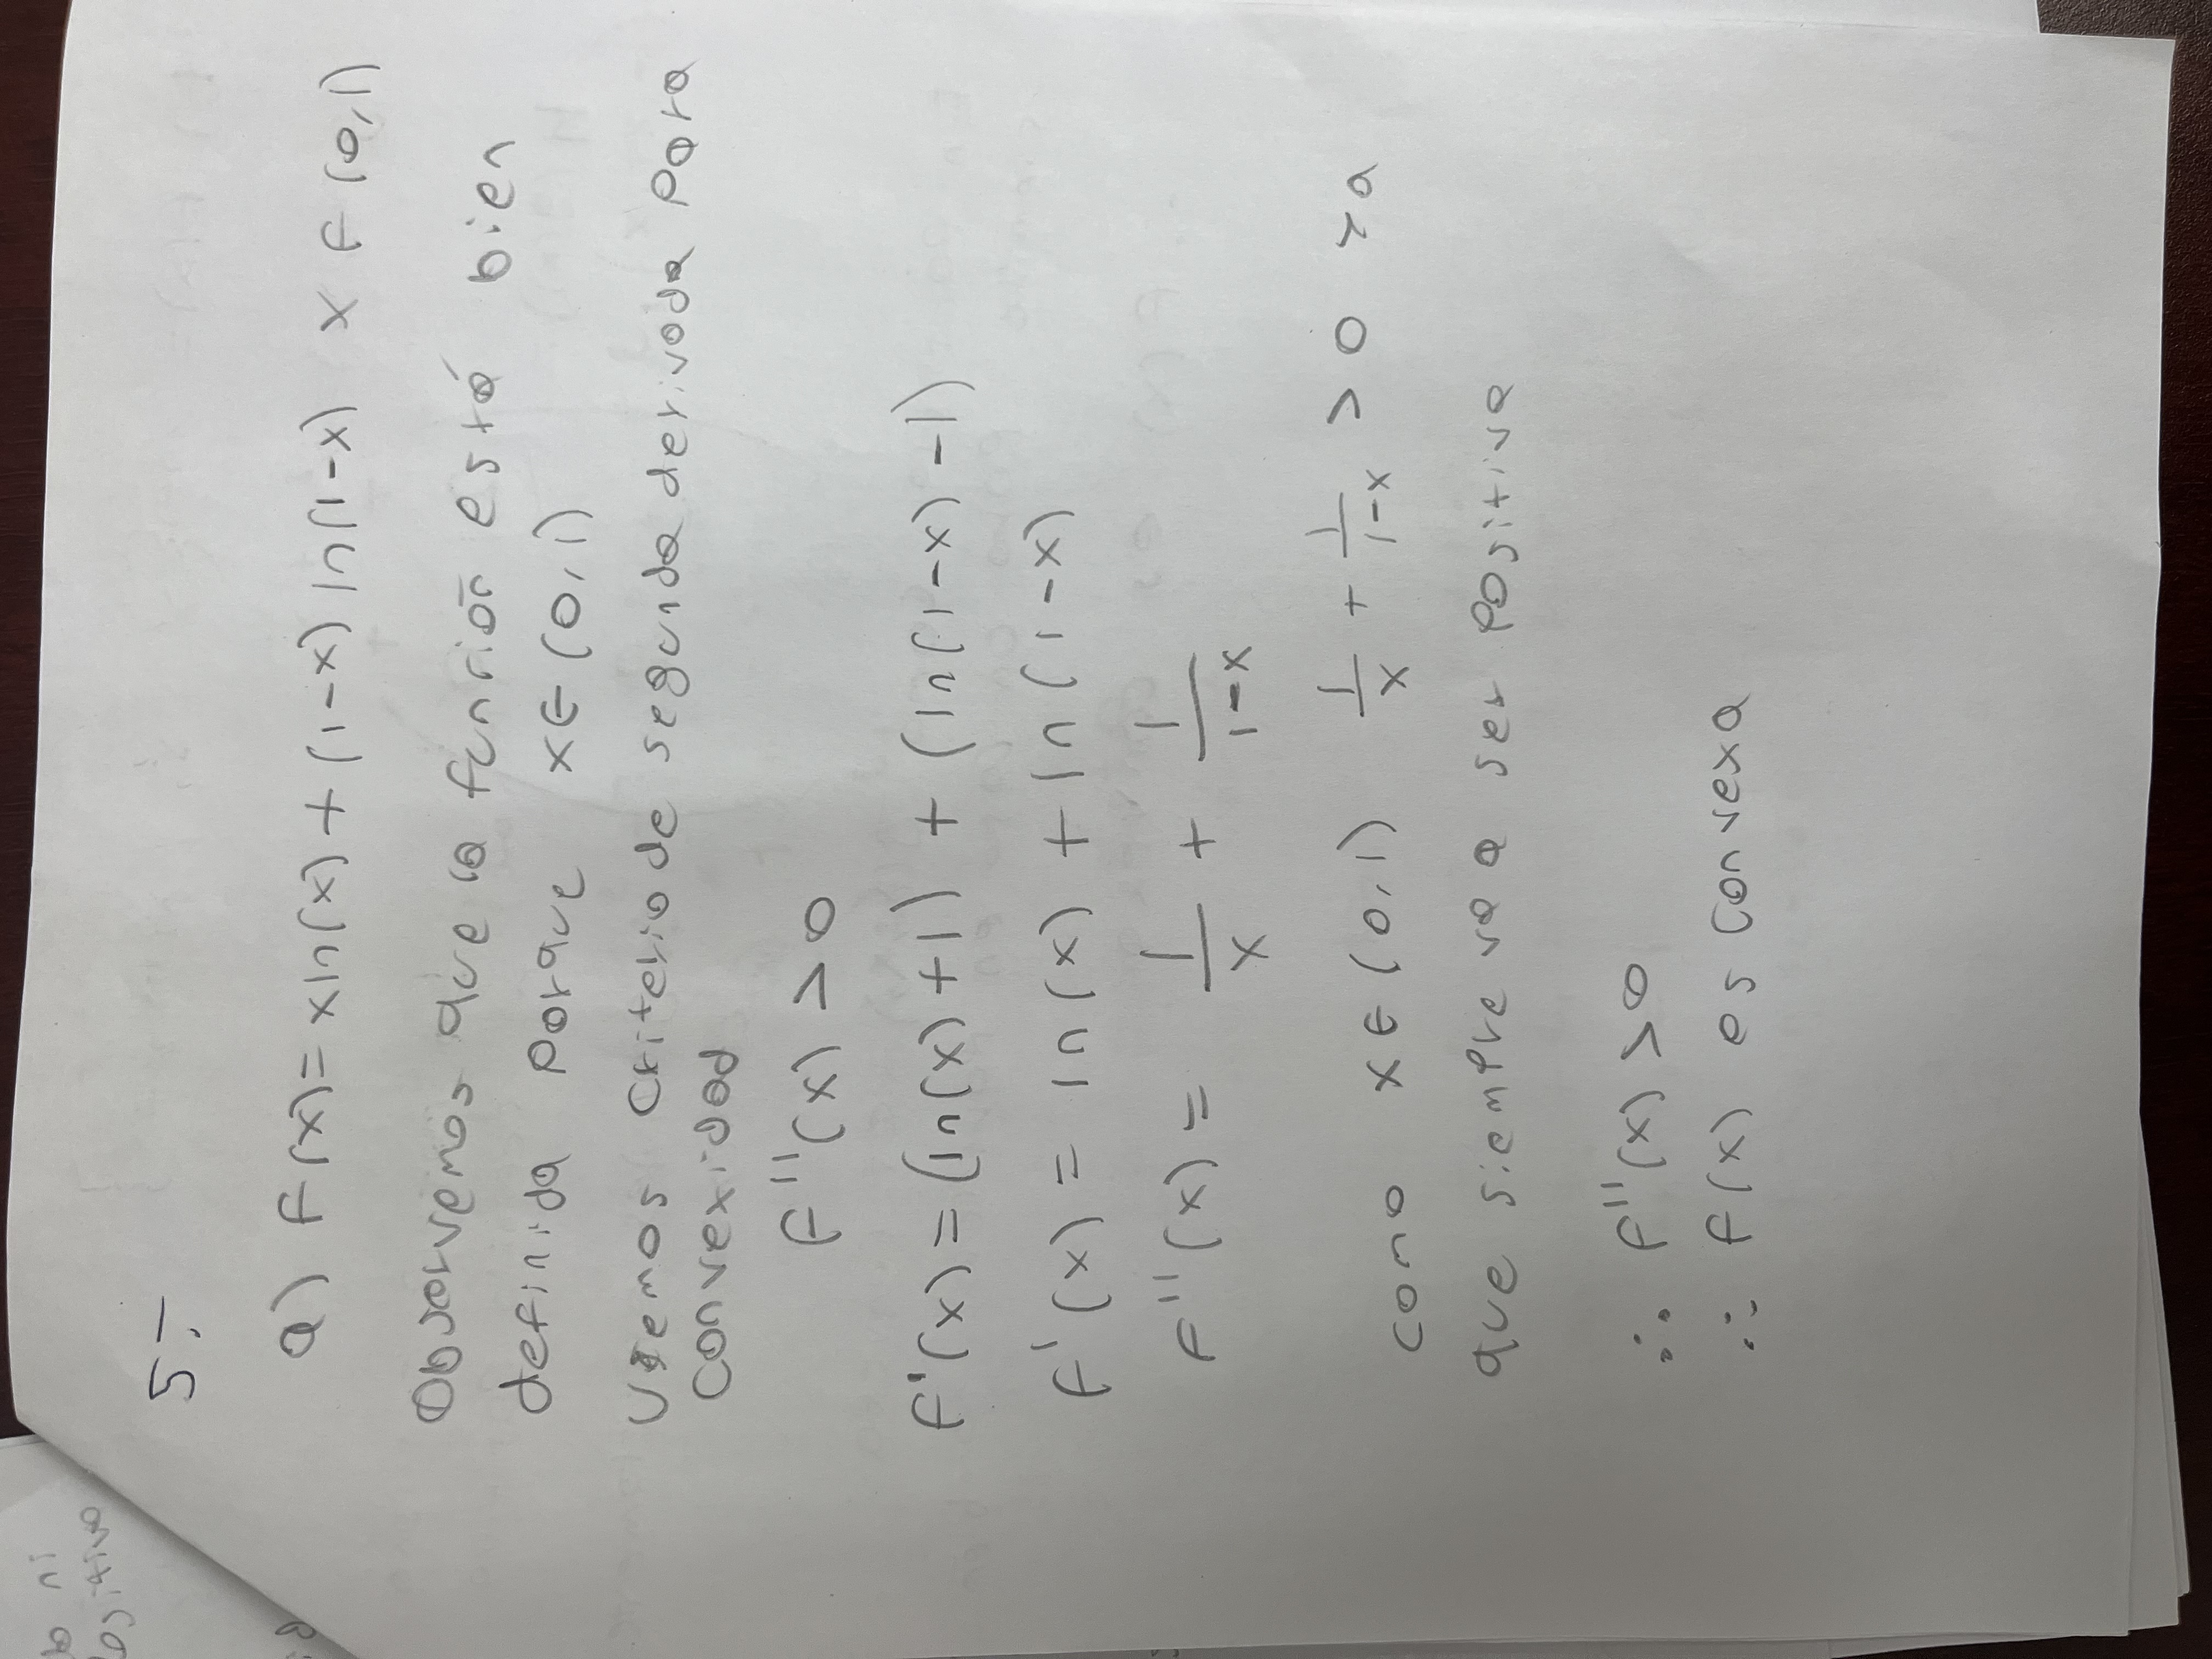 5.-
a) f(x) = xln(x) + (1-x) ln(1-x) x ∈ (0,1)
Observemos que la función está bien
definida porque x ∈ (0,1)
Usemos criterio de segunda derivada para
convexidad
f''(x) > 0
f'(x) = (ln(x) + 1) + (ln(1-x) - 1)
f'(x) = ln(x) + ln(1-x)
f''(x) = 1/x + 1/1-x
como x ∈ (0,1) 1/x + 1/1-x > 0 ya
que siempre va a ser positiva
∴ f''(x) > 0
∴ f(x) es convexa
ni